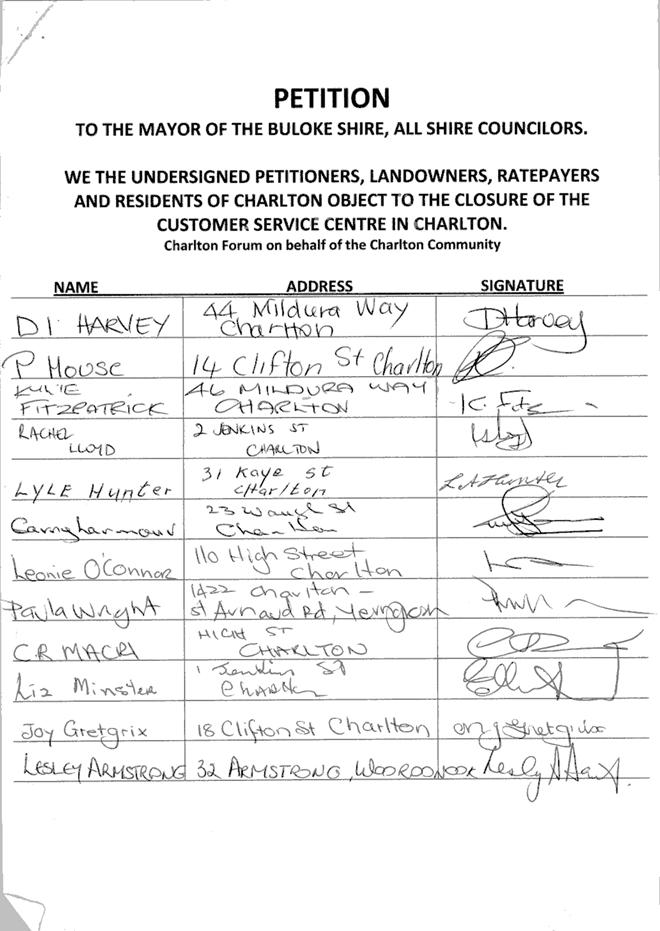 PETITION
TO THE MAYOR OF THE BULOKE SHIRE, ALL SHIRE COUNCILORS.
WE THE UNDERSIGNED PETITIONERS, LANDOWNERS, RATEPAYERS
AND RESIDENTS OF CHARLTON OBJECT TO THE CLOSURE OF THE
CUSTOMER SERVICE CENTRE IN CHARLTON.
Charlton Forum on behalf of the Charlton Community
NAME ADDRESS SIGNATURE
DI HARVEY 44 Mildura Way DHarvey
Charlton
P House 14 Clifton St Charlton
KYLIE 46 MILDURA WAY
FITZPATRICK CHARLTON K. Fitz
RACHEL 2 JENKINS ST
LLOYD CHARLTON
31 Kaye St
LYLE Hunter Charlton L A Hunter
23 St
Charlton
Leonie O'Connor 110 High Street
Charlton
1422 Charlton -
Paula Wright St Arnaud Rd, Yeungroon
HIGH ST
C.R MACRI CHARLTON
1 Jenkins St
Liz Minster Charlton
Joy Gretgrix 18 Clifton St Charlton Gretgrix
LESLEY ARMSTRONG 32 ARMSTRONG, WOOROONOOK Lesley